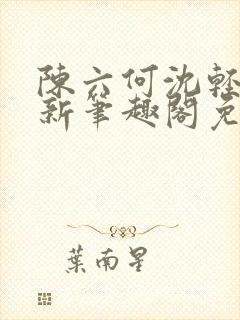 陳六何沈輕
新筆趣閣免
葉南星